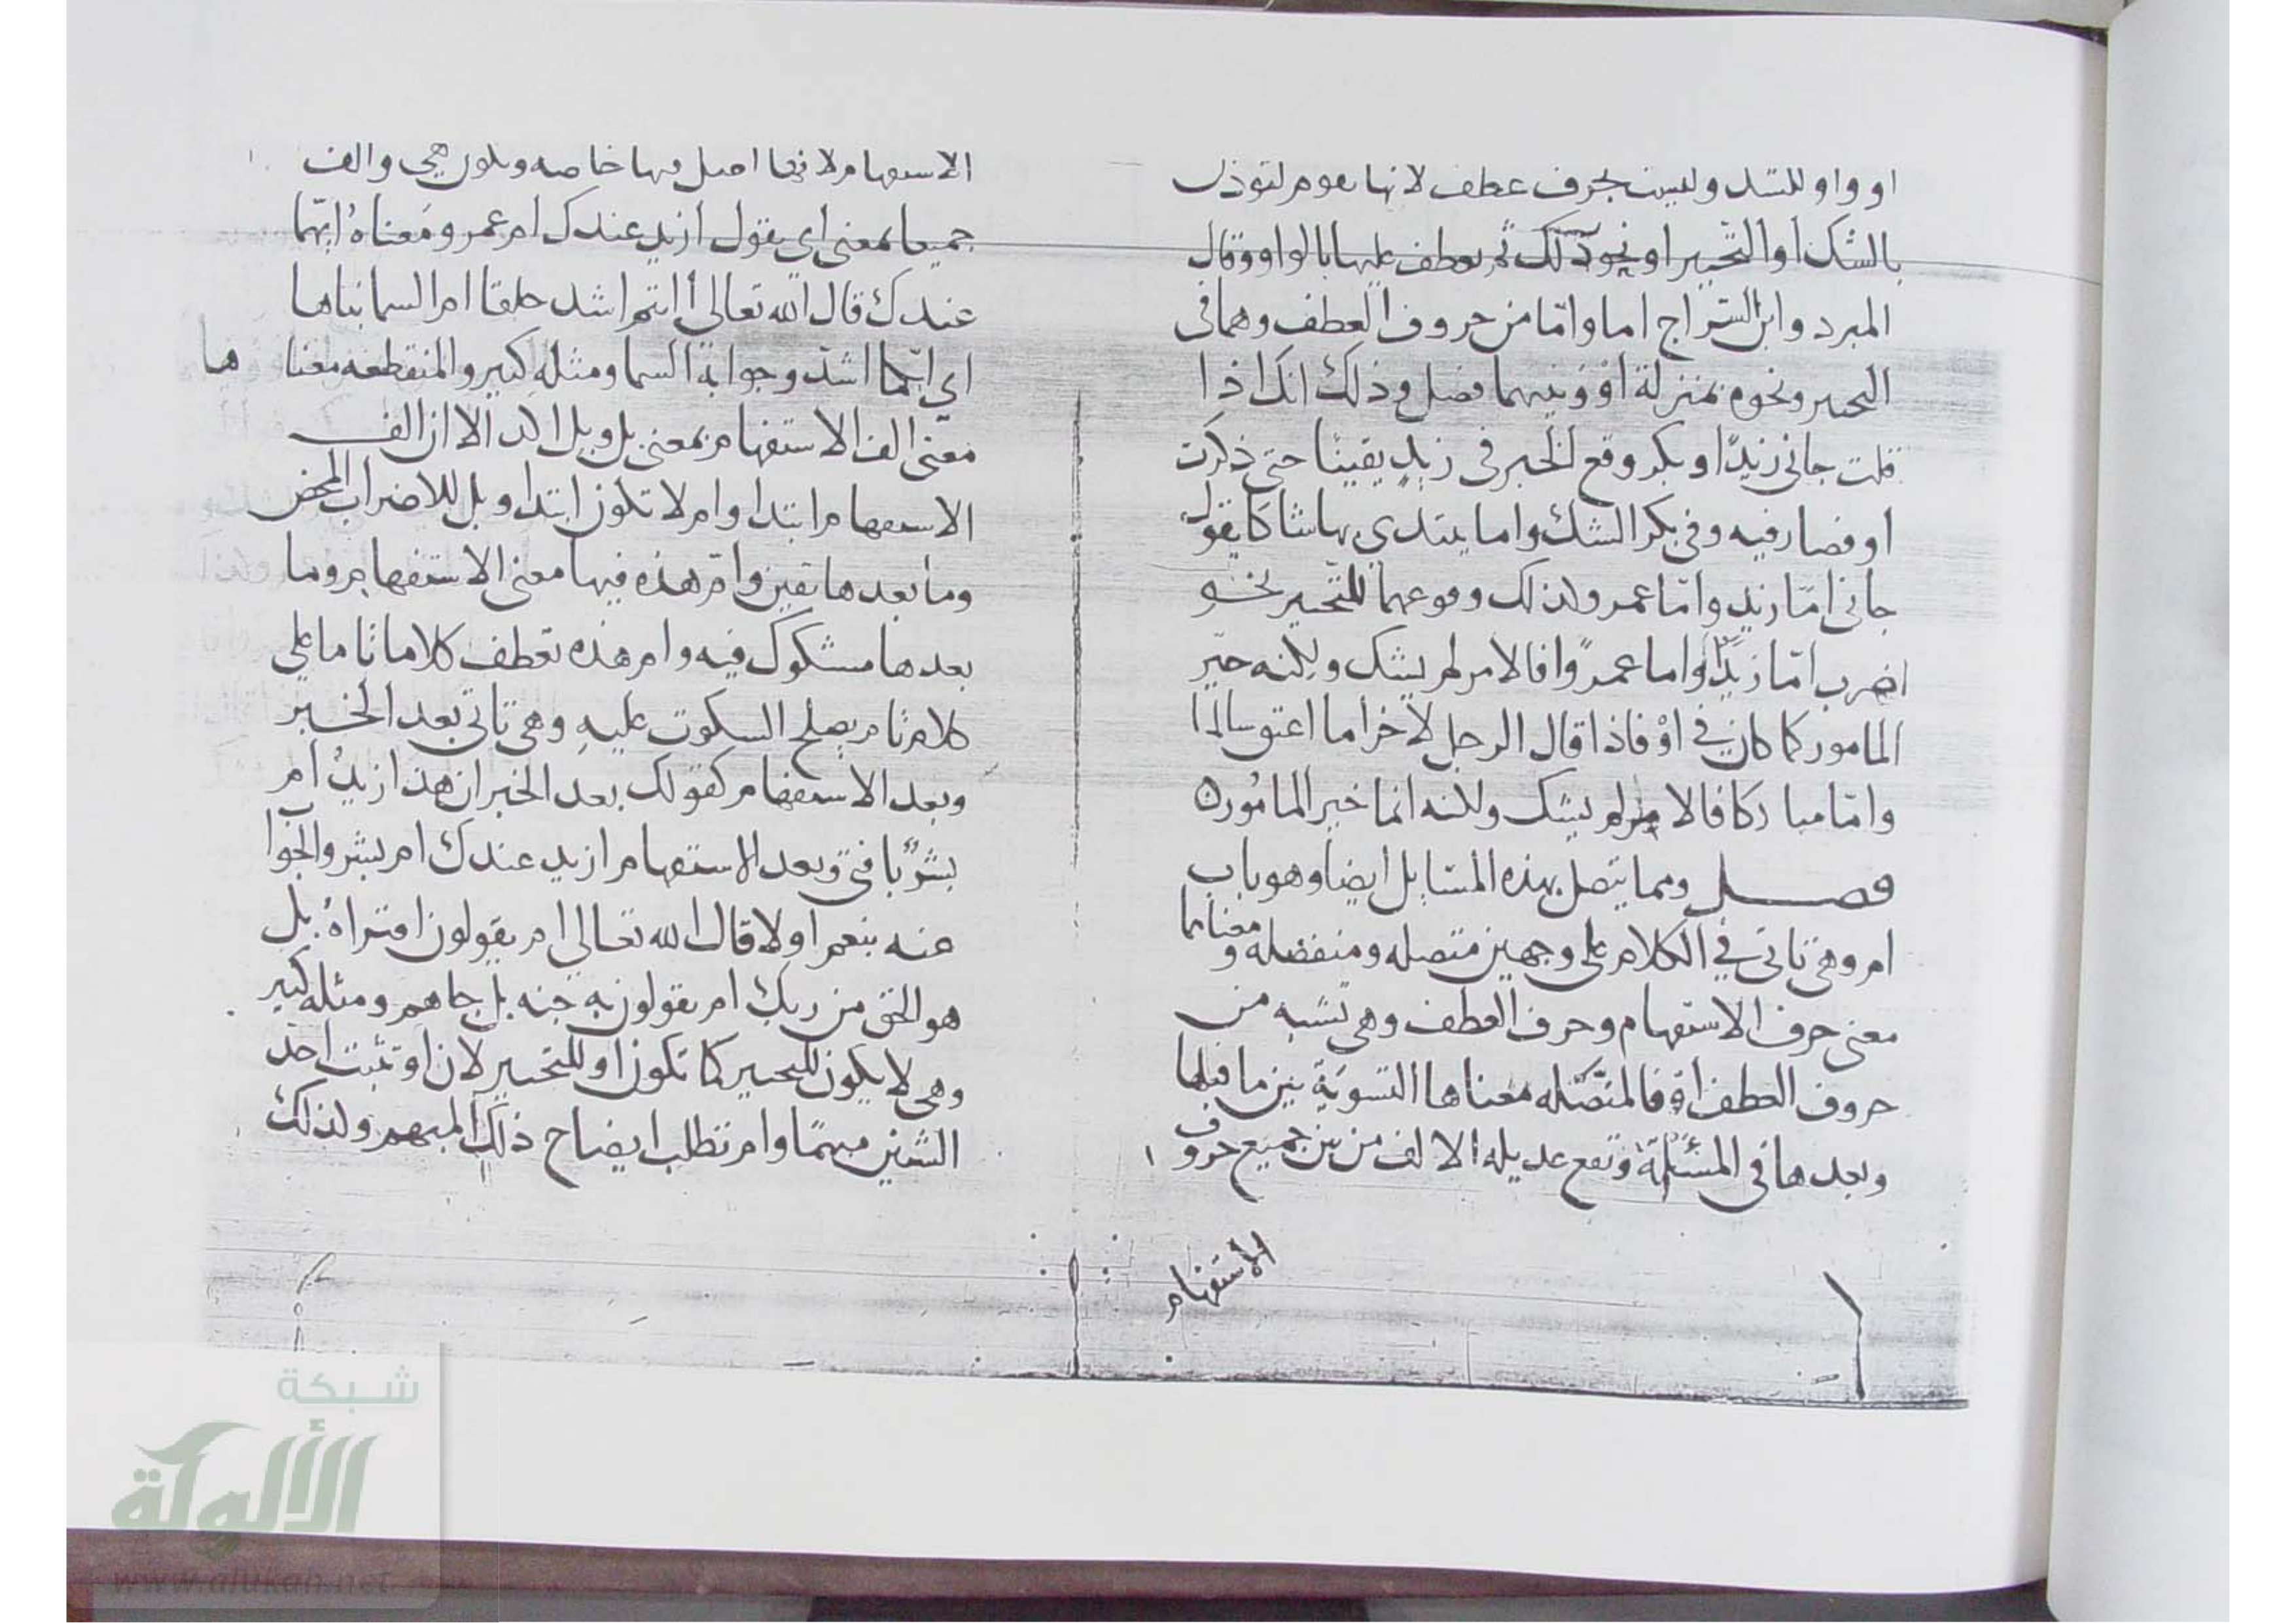 او واو للشك وليست بحرف عطف لانها تقوم لتوذن
بالشك او التخيير او نحو ذلك ثم يعطف عليها بالواو وقال
المبرد وابن السّراج اما وامّا من حروف العطف وهما في
التخيير ونحوه بمنزلة او وبينهما فصل وذلك انك اذا
قلت جاني زيدًا وبكر وقع الخبر في زيدٍ يقينًا حتى ذكرت
او فصار فيه وفي بكر الشك واما يبتدي بها شاكا يقول
جاني امّا زيد وامّا عمرو ولذلك وقوعهما للتّخيير نحو
اضرب امّا زيدًا واما عمرًوا فالامر لم يشك ولكنه خيّر
المامور كما كان في اوْ فاذا قال الرجل لاخر اما اعتق سالما
وامّا مباركا فالامر لم يشك ولكنه انما خير المامُور ه
فصل ومما يتصل بهذه المسايل ايضا وهو باب
ام وهي تاتي في الكلام على وجهين متصله ومنفصله ومعناهما
معنى حرف الاستفهام وحرف العطف وهي تشبه من
حروف العطف او فالمتّصله معناها التسوية بين ما قبلها
وبعدها في المسئلة وتقع عديله الالف من بين جميع حروف
الاستفهام
الاستفهام لانها اصل فيها خاصه وتكون هي والف
جميعا بمعنى اي يقول ازيد عندك ام عمرو ومعناهُ ايّهما
عندك قال الله تعالى أانتم اشد خلقا ام السما بناها
اي ايّهما اشدّ وجوابه السما ومثله كثير والمنقطعه معناها
معنى الف الاستفهام بمعنى بل وبل الا ان الف
الاستفهام ابتدا وام لا تكون ابتدا وبل للاضراب المحض
وما بعدها يقين وام هذه فيها معنى الاستفهام وما
بعدها مشكوك فيه وام هذه تعطف كلاما تاما على
كلام تام يصلح السكوت عليهِ وهي تاتي بعد الخبر
وبعد الاستفهام كقولك بعد الخبر ان هذا زيدٌ ام
بشرٌ يا فتى وبعد الاستفهام ازيد عندك ام بشر والجوا
عنه بنعم او لا قال الله تعالى ام يقولون افتراهُ بل
هو الحق من ربك ام يقولون به جنه بل جاهم ومثله كثير
وهي لا يكون للتخيير كما تكون او للتخيير لان او تثبت احد
الشيئين مبهمًا وام تطلب ايضاح ذلك المبهم ولذلك
شبكة
الألوكة
www.alukah.net